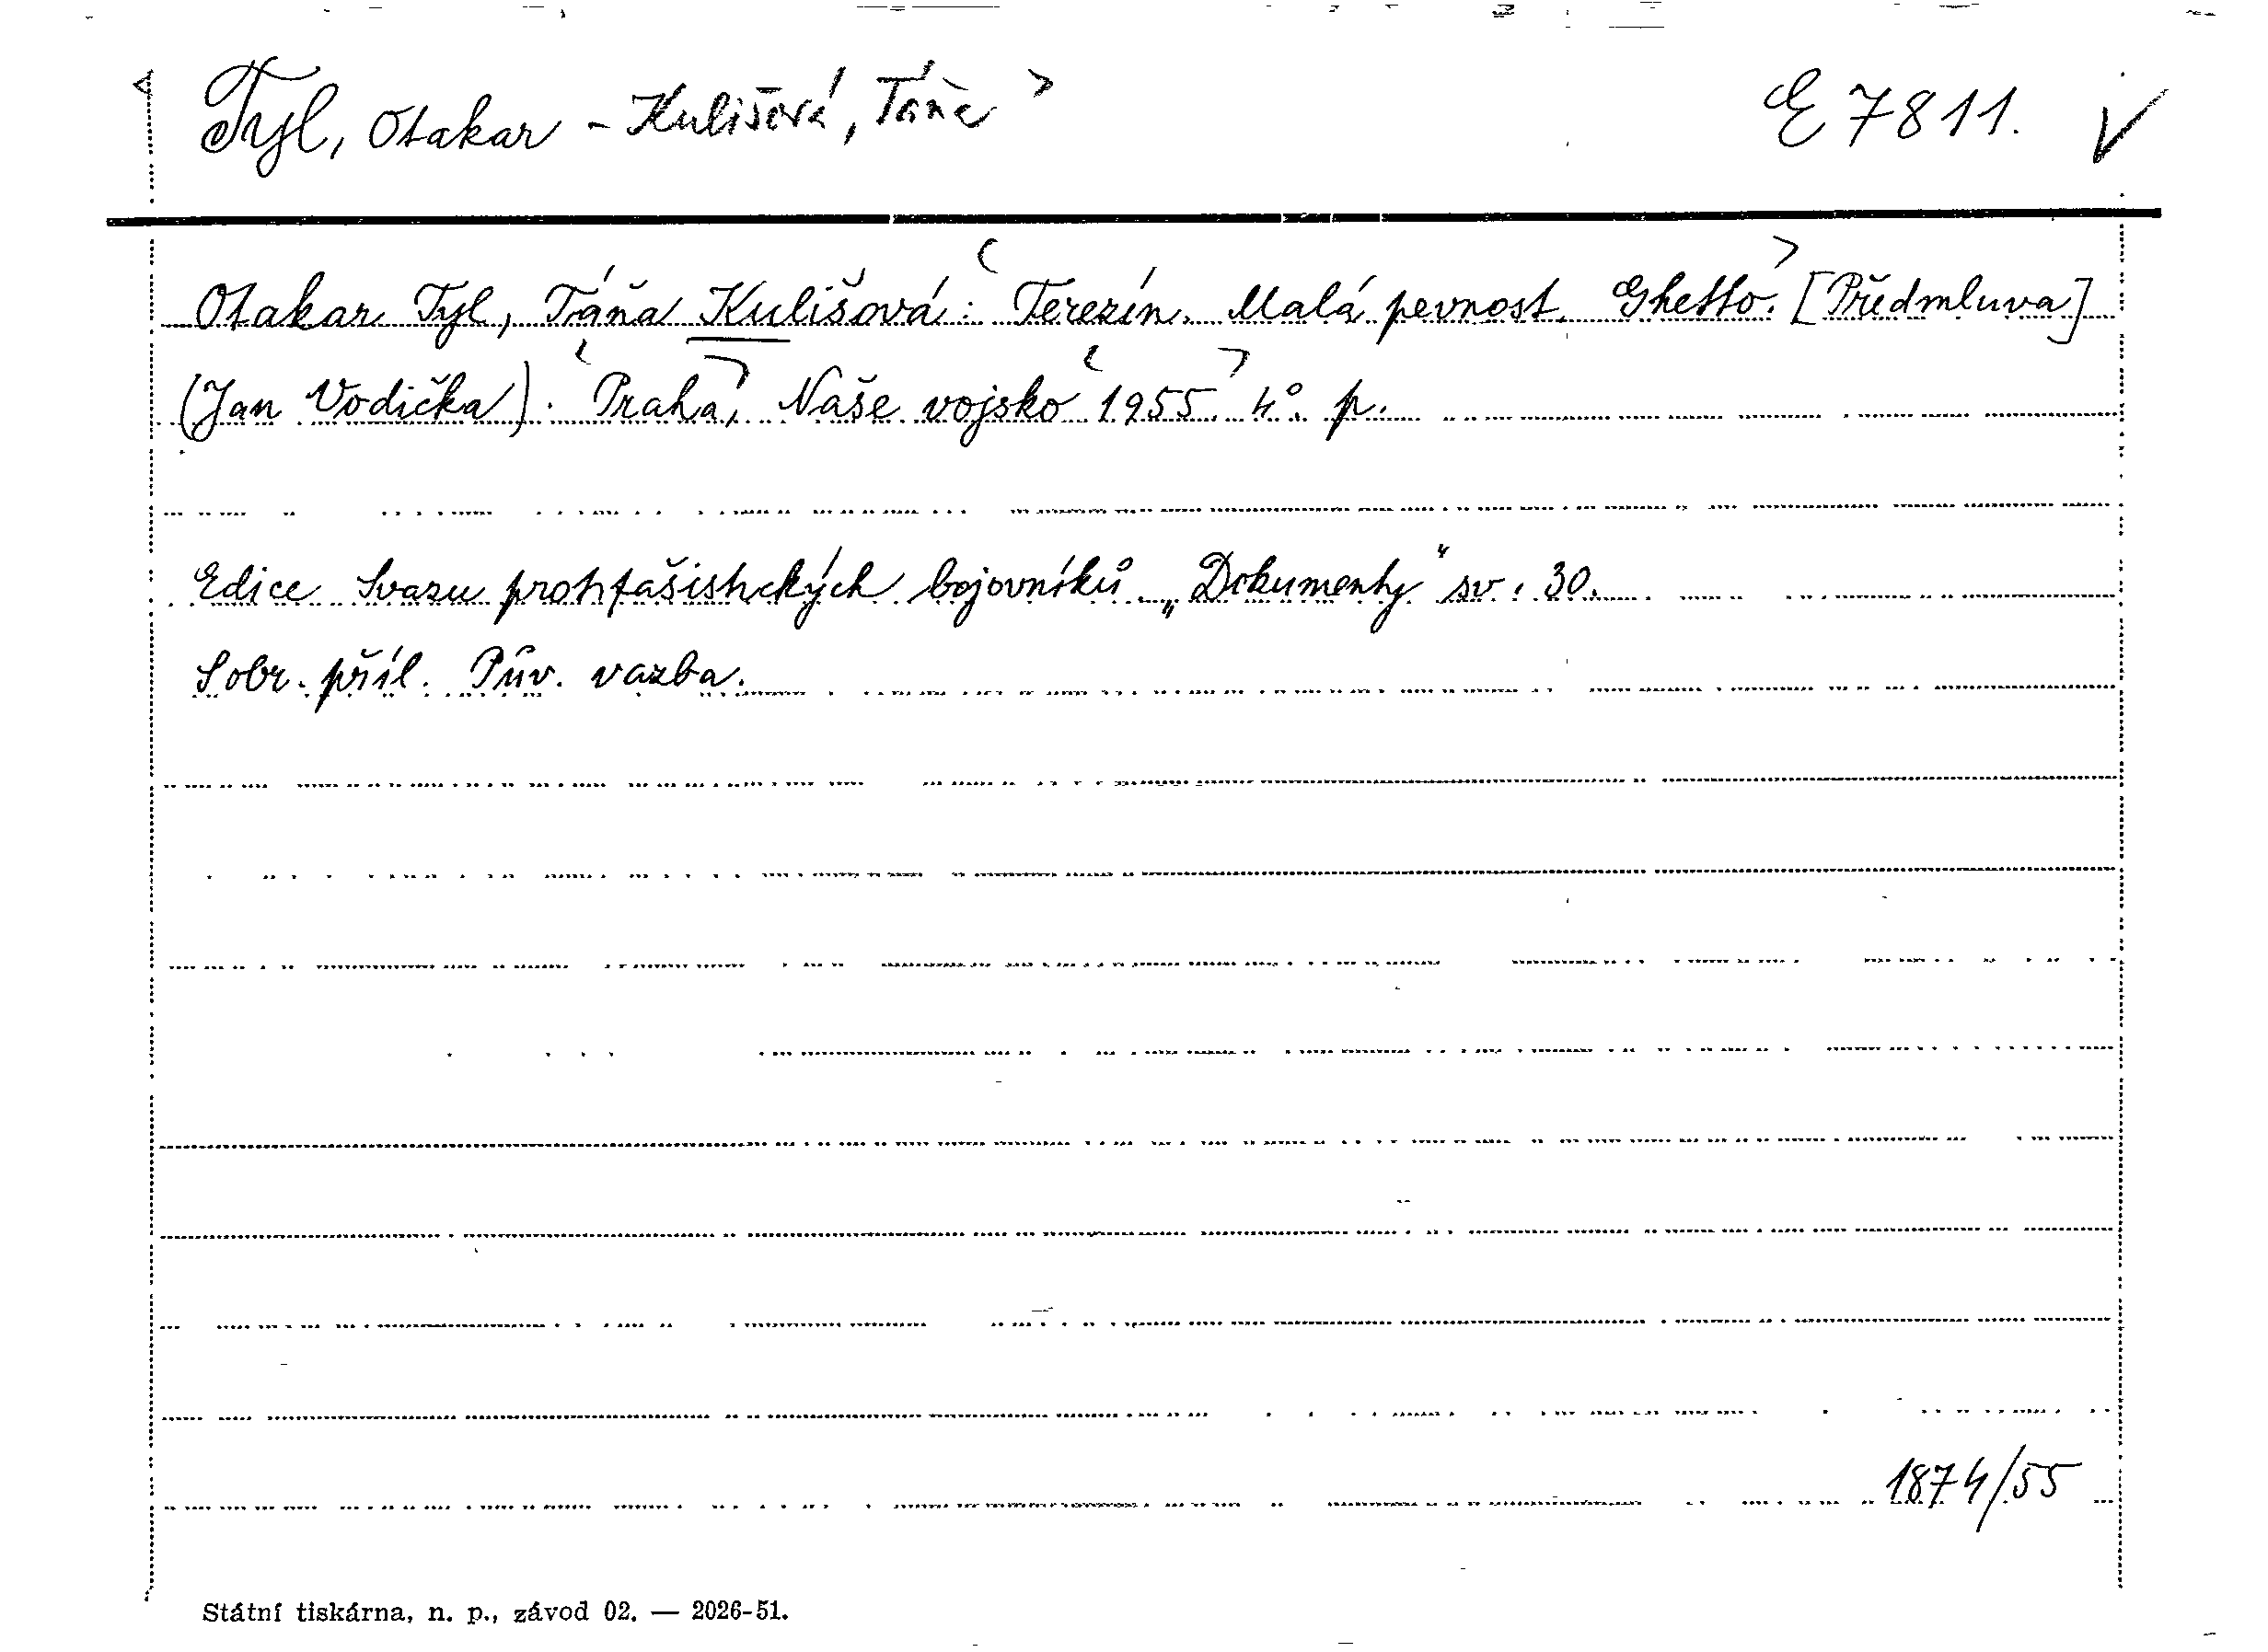 < Tyl, Otakar - Kulišová, Táňa > E 7811. V
Otakar Tyl, Táňa Kulišová: <Terezín. Malá pevnost. Ghetto.> [Předmluva]
(Jan Vodička). <Praha,> Naše vojsko <1955.> 4°. p.
Edice Svazu protifašistických bojovníků „Dokumenty“ sv. 30.
Sobr. příl. Pův. vazba.
1874/55
Státní tiskárna, n. p., závod 02. — 2026-51.